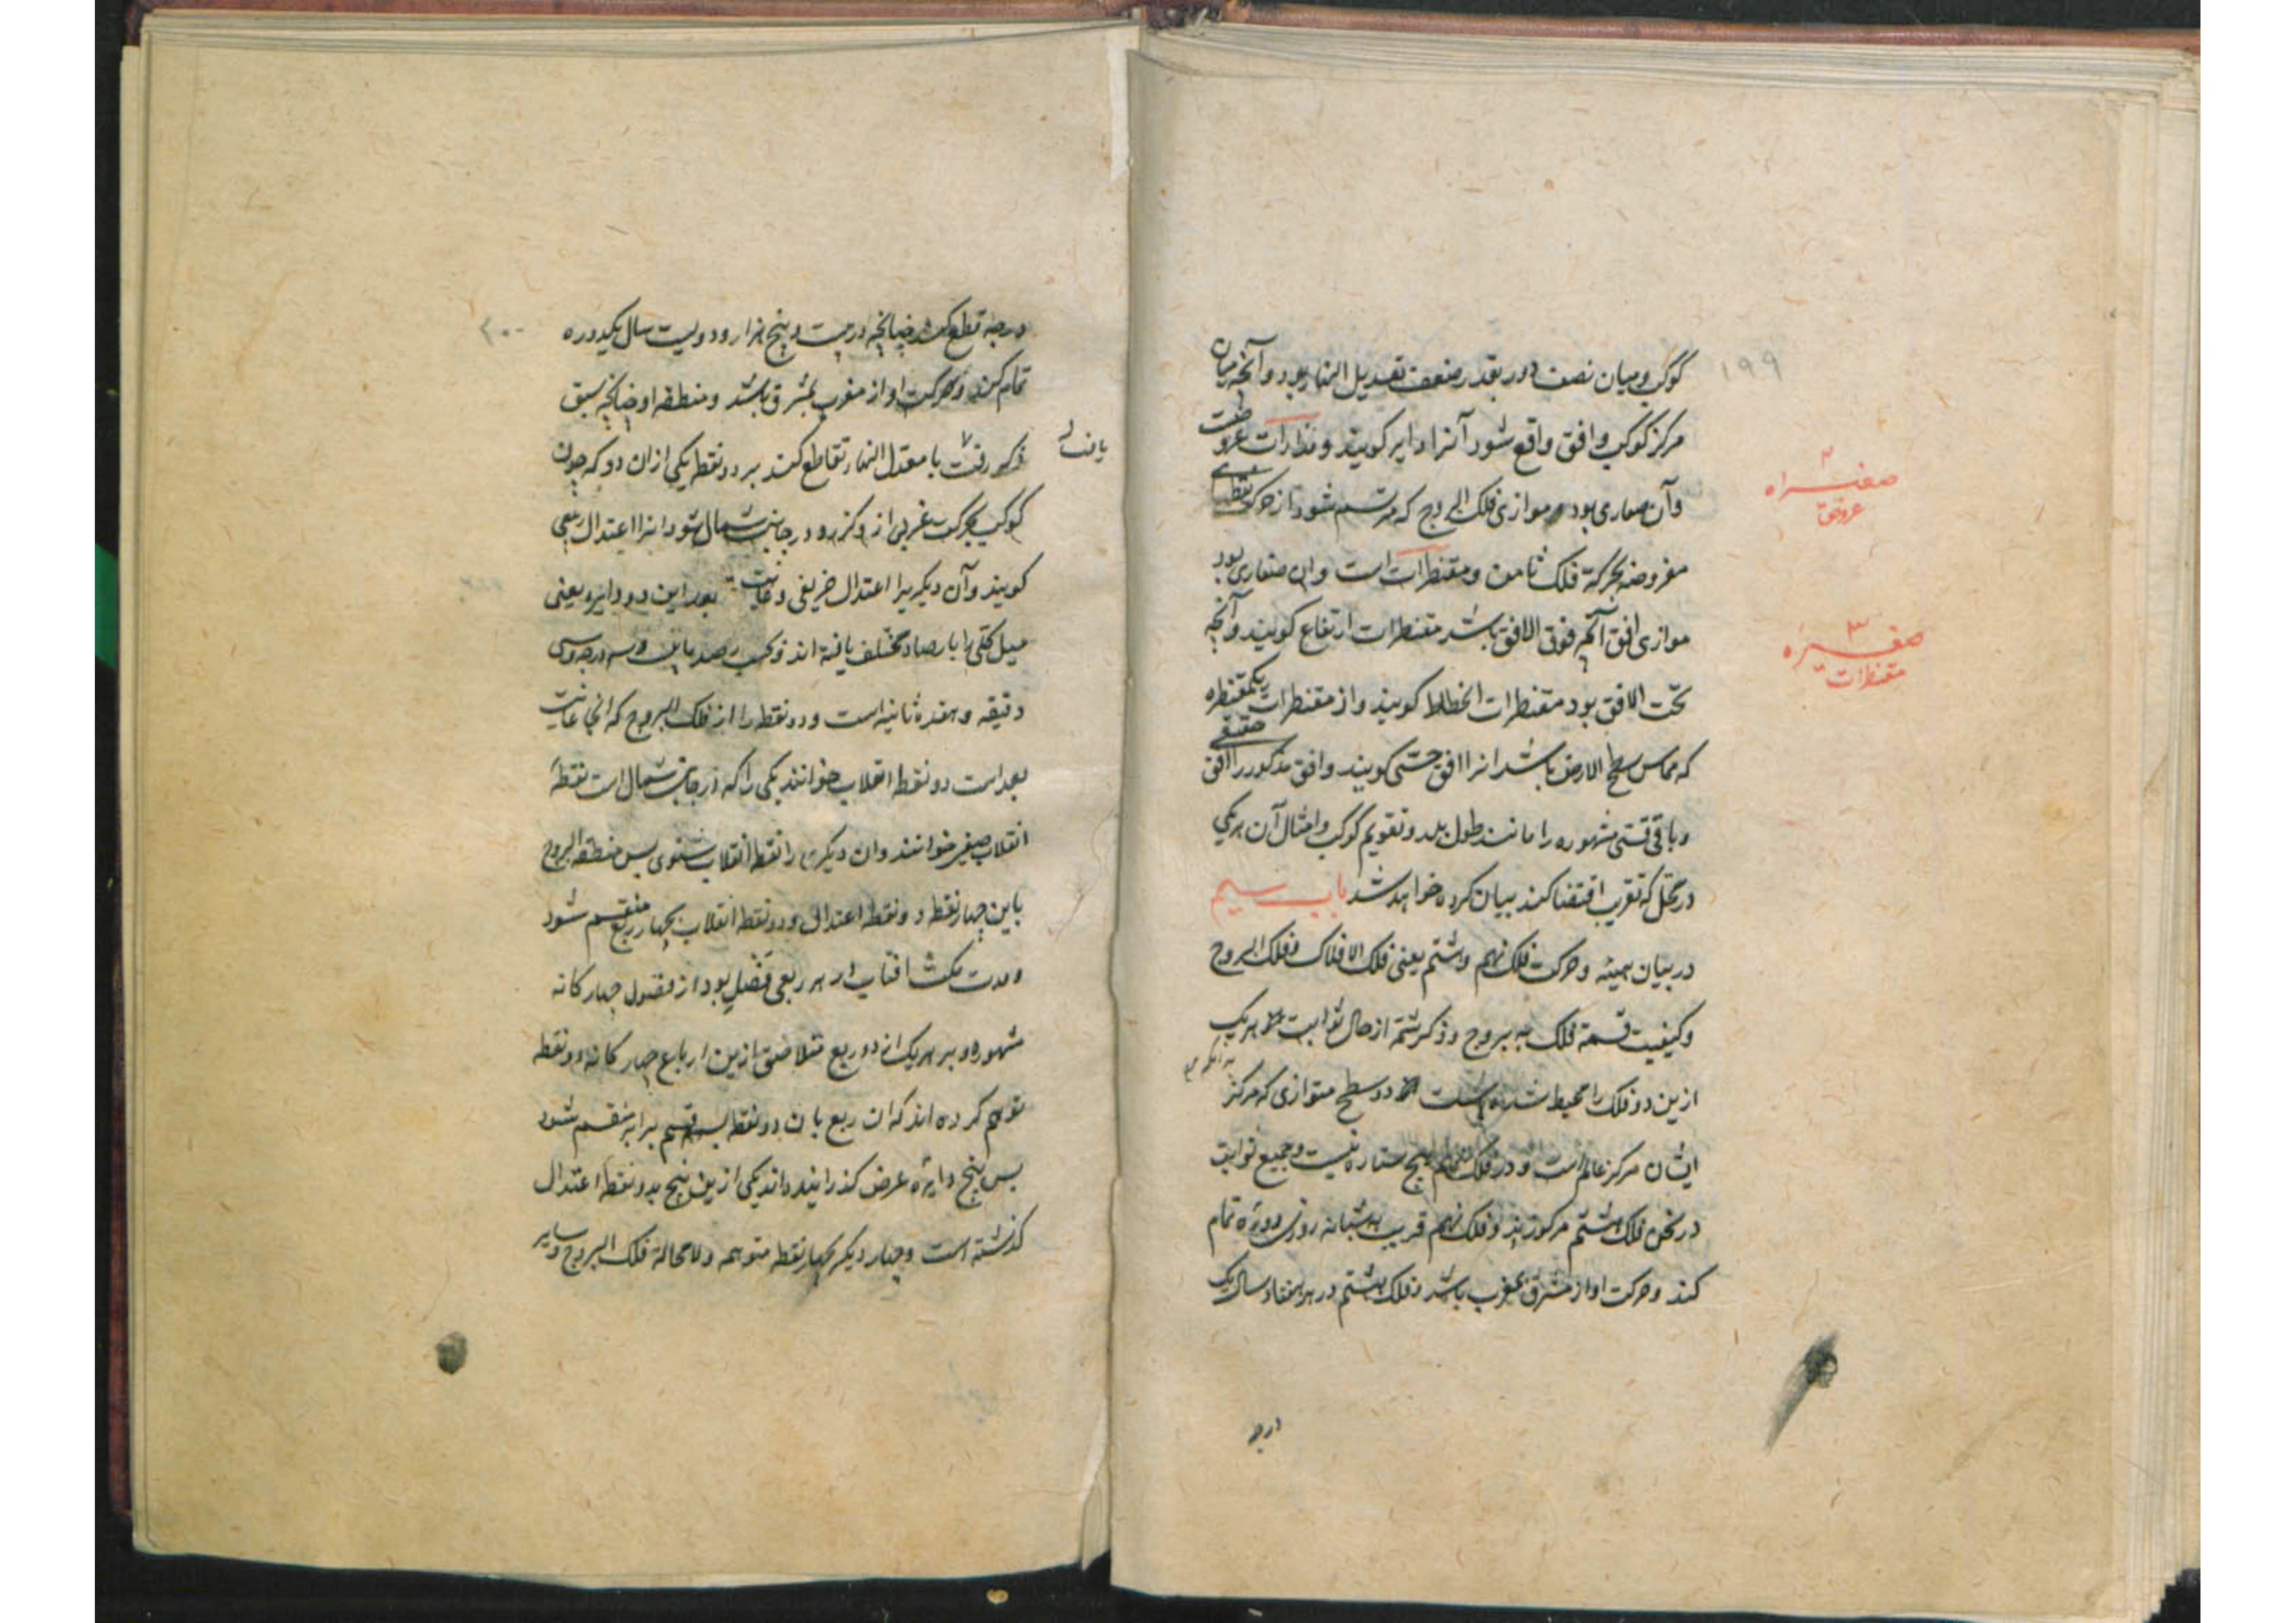 ۱۹۹
کوکب و میان نصف دور بقدر ضعف تعدیل النهار بود و آنچه میان
مرکز کوکب و افق واقع شود آنرا دایر کویند و مدارات عروضیت
وآن صغاری بود موازی فلک البروج که مرتسم شود از حرکت نقطهای
مفروضه بحرکة فلک ثامن و مقنطرات است وان صغاری بود
موازی افق آنچه فوق الافق باشد مقنطرات ارتفاع کویند و آنچه
تحت الافق بود مقنطرات انحطاط کویند و از مقنطرات یکمقنطره
که مماس سطح الارض باشد انرا افق حسی کویند وافق مذکور را افق حقیقی
و باقی قسی مشهوره را مانند طول بلد و تقویم کوکب و امثال آن هریکی
در محل که تقریب اقتضا کند بیان کرده خواهد شد باب سیم
در بیان هیئة و حرکت فلک نهم و هشتم یعنی فلک الافلاک و فلک البروج
و کیفیت قسمة فلک به بروج و ذکر شمه از حال ثوابت هریک
ازین دو فلک را محیط شده است دو سطح متوازی که مرکز
ایشان مرکز عالم است و در فلک نهم هیچ ستاره نیست و جمیع ثوابت
در ثخن فلک هشتم مرکوزند و فلک نهم قریب بشبانه روزی دوره تمام
کند و حرکت او از مشرق بمغرب باشد و فلک هشتم در هر هفتاد سال یک
درجه
۲
صغیره
عروض
۳
صغیره
مقنطرات
۲۰۰
درجه قطع کند چنانچه در بیست و پنج هزار و دویست سال یکدوره
تمام کند و حرکت او از مغرب بمشرق باشد و منطقه او چنانچه سبق
ذکر رفت با معدل النهار تقاطع کند بر دو نقطه یکی ازان دو که چون
کوکب بحرکت غربی از و کذرد در جانب شمال شود انرا اعتدال ربیعی
کویند وآن دیکریرا اعتدال خریفی و غایت بعد این دو دایره یعنی
میل کلی را بارصاد مختلف یافته اند و بحسب رصد ما بیست و سه درجه و سی
دقیقه و هفده ثانیه است و دو نقطه را از فلک البروج که انجا غایت
بعد است دو نقطه انقلاب خوانند یکی را که در جانب شمال است نقطهٔ
انقلاب صیفی خوانند وان دیکری را نقطه انقلاب شتوی پس منطقه البروج
باین چهار نقطه دو نقطه اعتدالی و دو نقطه انقلاب بچهار ربع منقسم شود
و مدت مکث افتاب در هر ربعی فصلی بود از فصول چهارکانه
مشهوره و بر هر یک از دو ربع متلاصق ازین ارباع چهارکانه دو نقطه
توهم کرده اند که ان ربع بان دو نقطه بسه قسم برابر منقسم شود
پس پنج دایره عرض کذرانیده اند یکی ازین پنج بدو نقطه اعتدال
کذشته است و چهار دیکر بچهار نقطه متوهمه و لامحالة فلک البروج و سایر